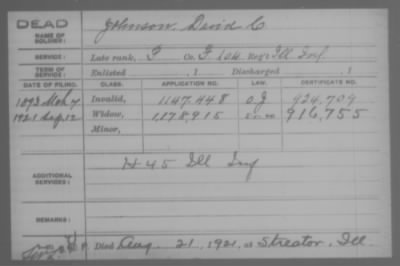 DEAD
NAME OF SOLDIER: Johnson, David C
SERVICE: Late rank, P Co. G, 104 Reg't Ill Inf.
TERM OF SERVICE: Enlisted , 1 Discharged , 1
DATE OF FILING. CLASS. APPLICATION NO. LAW. CERTIFICATE NO.
1893 Mch 7 Invalid, 1147,448 924,709
1921 Sep 12 Widow, 1,178,915 916,755
Minor,
ADDITIONAL SERVICES: H 45 Ill Inf
REMARKS:
Died Aug. 21, 1921, at Streator, Ill.